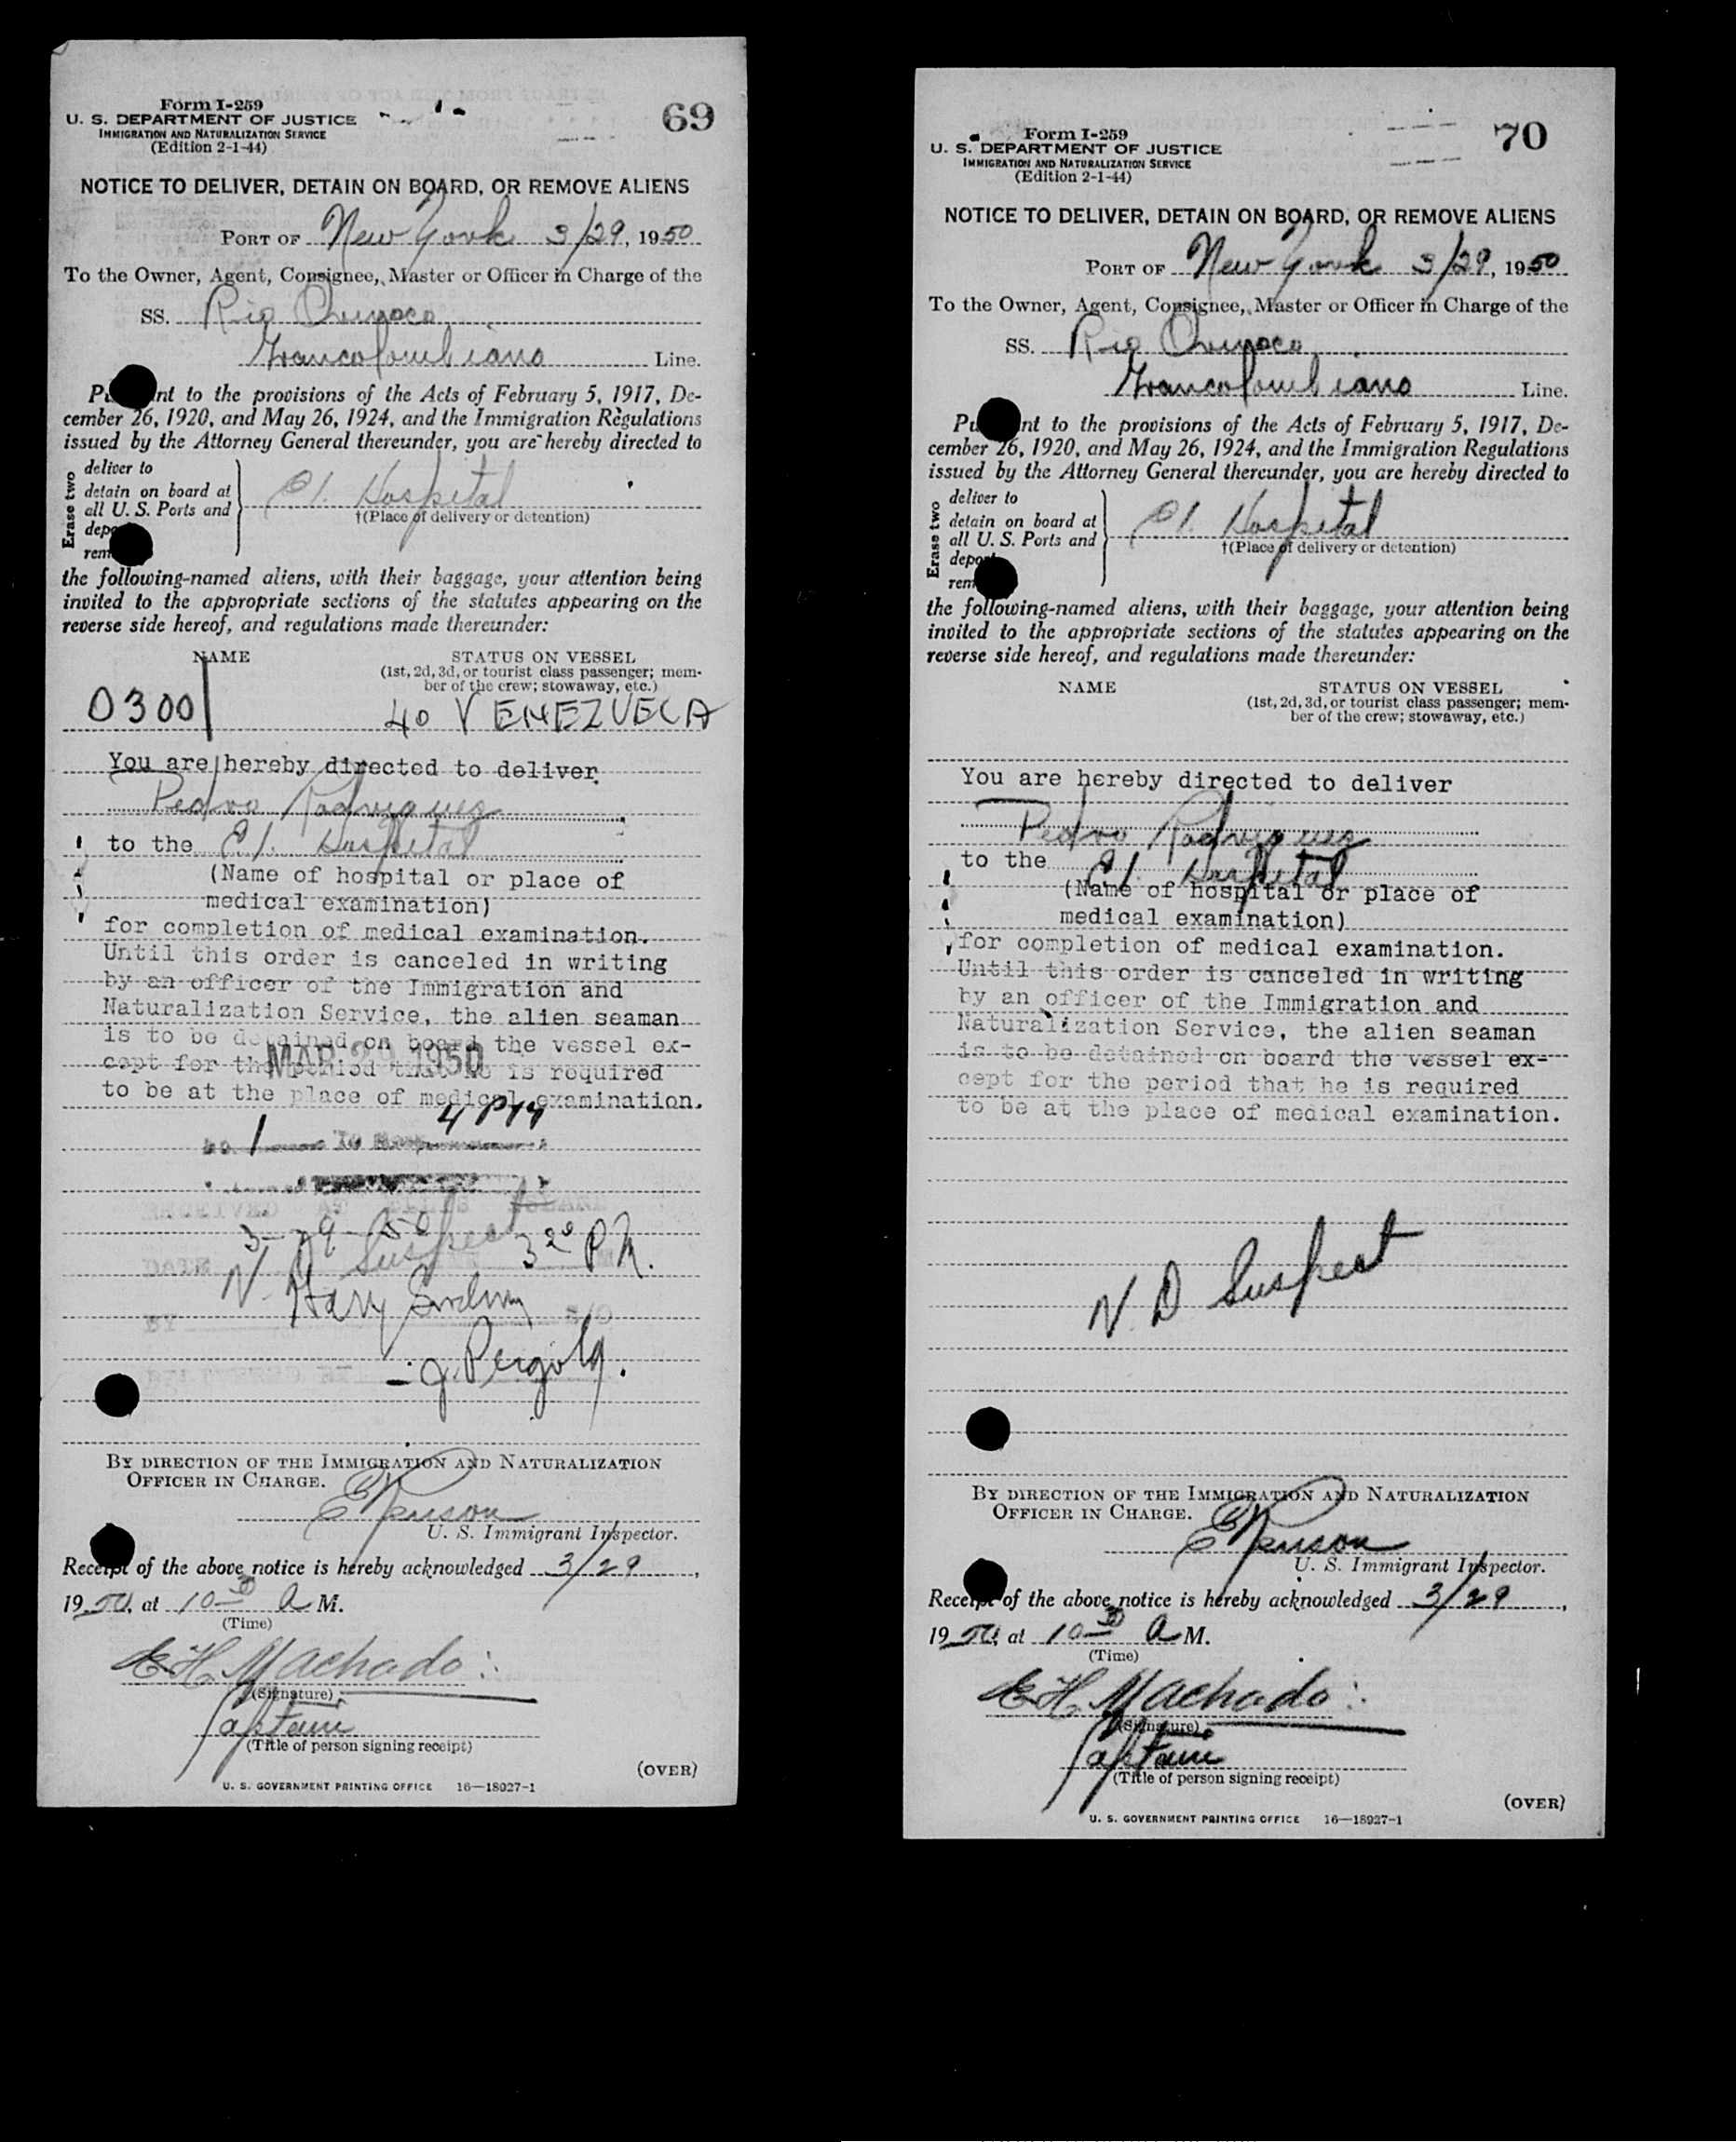 Form I-259
U. S. DEPARTMENT OF JUSTICE
IMMIGRATION AND NATURALIZATION SERVICE
(Edition 2-1-44)
69
NOTICE TO DELIVER, DETAIN ON BOARD, OR REMOVE ALIENS
PORT OF New York 3/29, 1950
To the Owner, Agent, Consignee, Master or Officer in Charge of the
SS. Rio Orinoco
Grancolombiana Line.
Pu nt to the provisions of the Acts of February 5, 1917, De-
cember 26, 1920, and May 26, 1924, and the Immigration Regulations
issued by the Attorney General thereunder, you are hereby directed to
Erase two
deliver to
detain on board at
all U. S. Ports and
depo
rem
E I. Hospital
†(Place of delivery or detention)
the following-named aliens, with their baggage, your attention being
invited to the appropriate sections of the statutes appearing on the
reverse side hereof, and regulations made thereunder:
NAME STATUS ON VESSEL
(1st, 2d, 3d, or tourist class passenger; mem-
ber of the crew; stowaway, etc.)
0300 40 VENEZUELA
You are hereby directed to deliver
Pedro Rodriguez
to the E I. Hospital
(Name of hospital or place of
medical examination)
for completion of medical examination.
Until this order is canceled in writing
by an officer of the Immigration and
Naturalization Service, the alien seaman
is to be detained on board the vessel ex-
cept for the period that he is required
to be at the place of medical examination.
MAR 29 1950
4 PM
1
3-29-50 3 20 P.M.
V. D Suspect
Harry
J. Pergola.
BY DIRECTION OF THE IMMIGRATION AND NATURALIZATION
OFFICER IN CHARGE.
U. S. Immigrant Inspector.
Receipt of the above notice is hereby acknowledged 3/29,
1950, at 10 30 A M.
(Time)
E H Machado
(Signature)
Captain
(Title of person signing receipt)
(OVER)
U. S. GOVERNMENT PRINTING OFFICE 16—18927-1
Form I-259
U. S. DEPARTMENT OF JUSTICE
IMMIGRATION AND NATURALIZATION SERVICE
(Edition 2-1-44)
70
NOTICE TO DELIVER, DETAIN ON BOARD, OR REMOVE ALIENS
PORT OF New York 3/29, 1950
To the Owner, Agent, Consignee, Master or Officer in Charge of the
SS. Rio Orinoco
Grancolombiana Line.
Pu nt to the provisions of the Acts of February 5, 1917, De-
cember 26, 1920, and May 26, 1924, and the Immigration Regulations
issued by the Attorney General thereunder, you are hereby directed to
Erase two
deliver to
detain on board at
all U. S. Ports and
depo
rem
E I. Hospital
†(Place of delivery or detention)
the following-named aliens, with their baggage, your attention being
invited to the appropriate sections of the statutes appearing on the
reverse side hereof, and regulations made thereunder:
NAME STATUS ON VESSEL
(1st, 2d, 3d, or tourist class passenger; mem-
ber of the crew; stowaway, etc.)
You are hereby directed to deliver
Pedro Rodriguez
to the E I. Hospital
(Name of hospital or place of
medical examination)
for completion of medical examination.
Until this order is canceled in writing
by an officer of the Immigration and
Naturalization Service, the alien seaman
is to be detained on board the vessel ex-
cept for the period that he is required
to be at the place of medical examination.
V. D Suspect
BY DIRECTION OF THE IMMIGRATION AND NATURALIZATION
OFFICER IN CHARGE.
U. S. Immigrant Inspector.
Receipt of the above notice is hereby acknowledged 3/29,
1950, at 10 30 A M.
(Time)
E H Machado
(Signature)
Captain
(Title of person signing receipt)
(OVER)
U. S. GOVERNMENT PRINTING OFFICE 16—18927-1